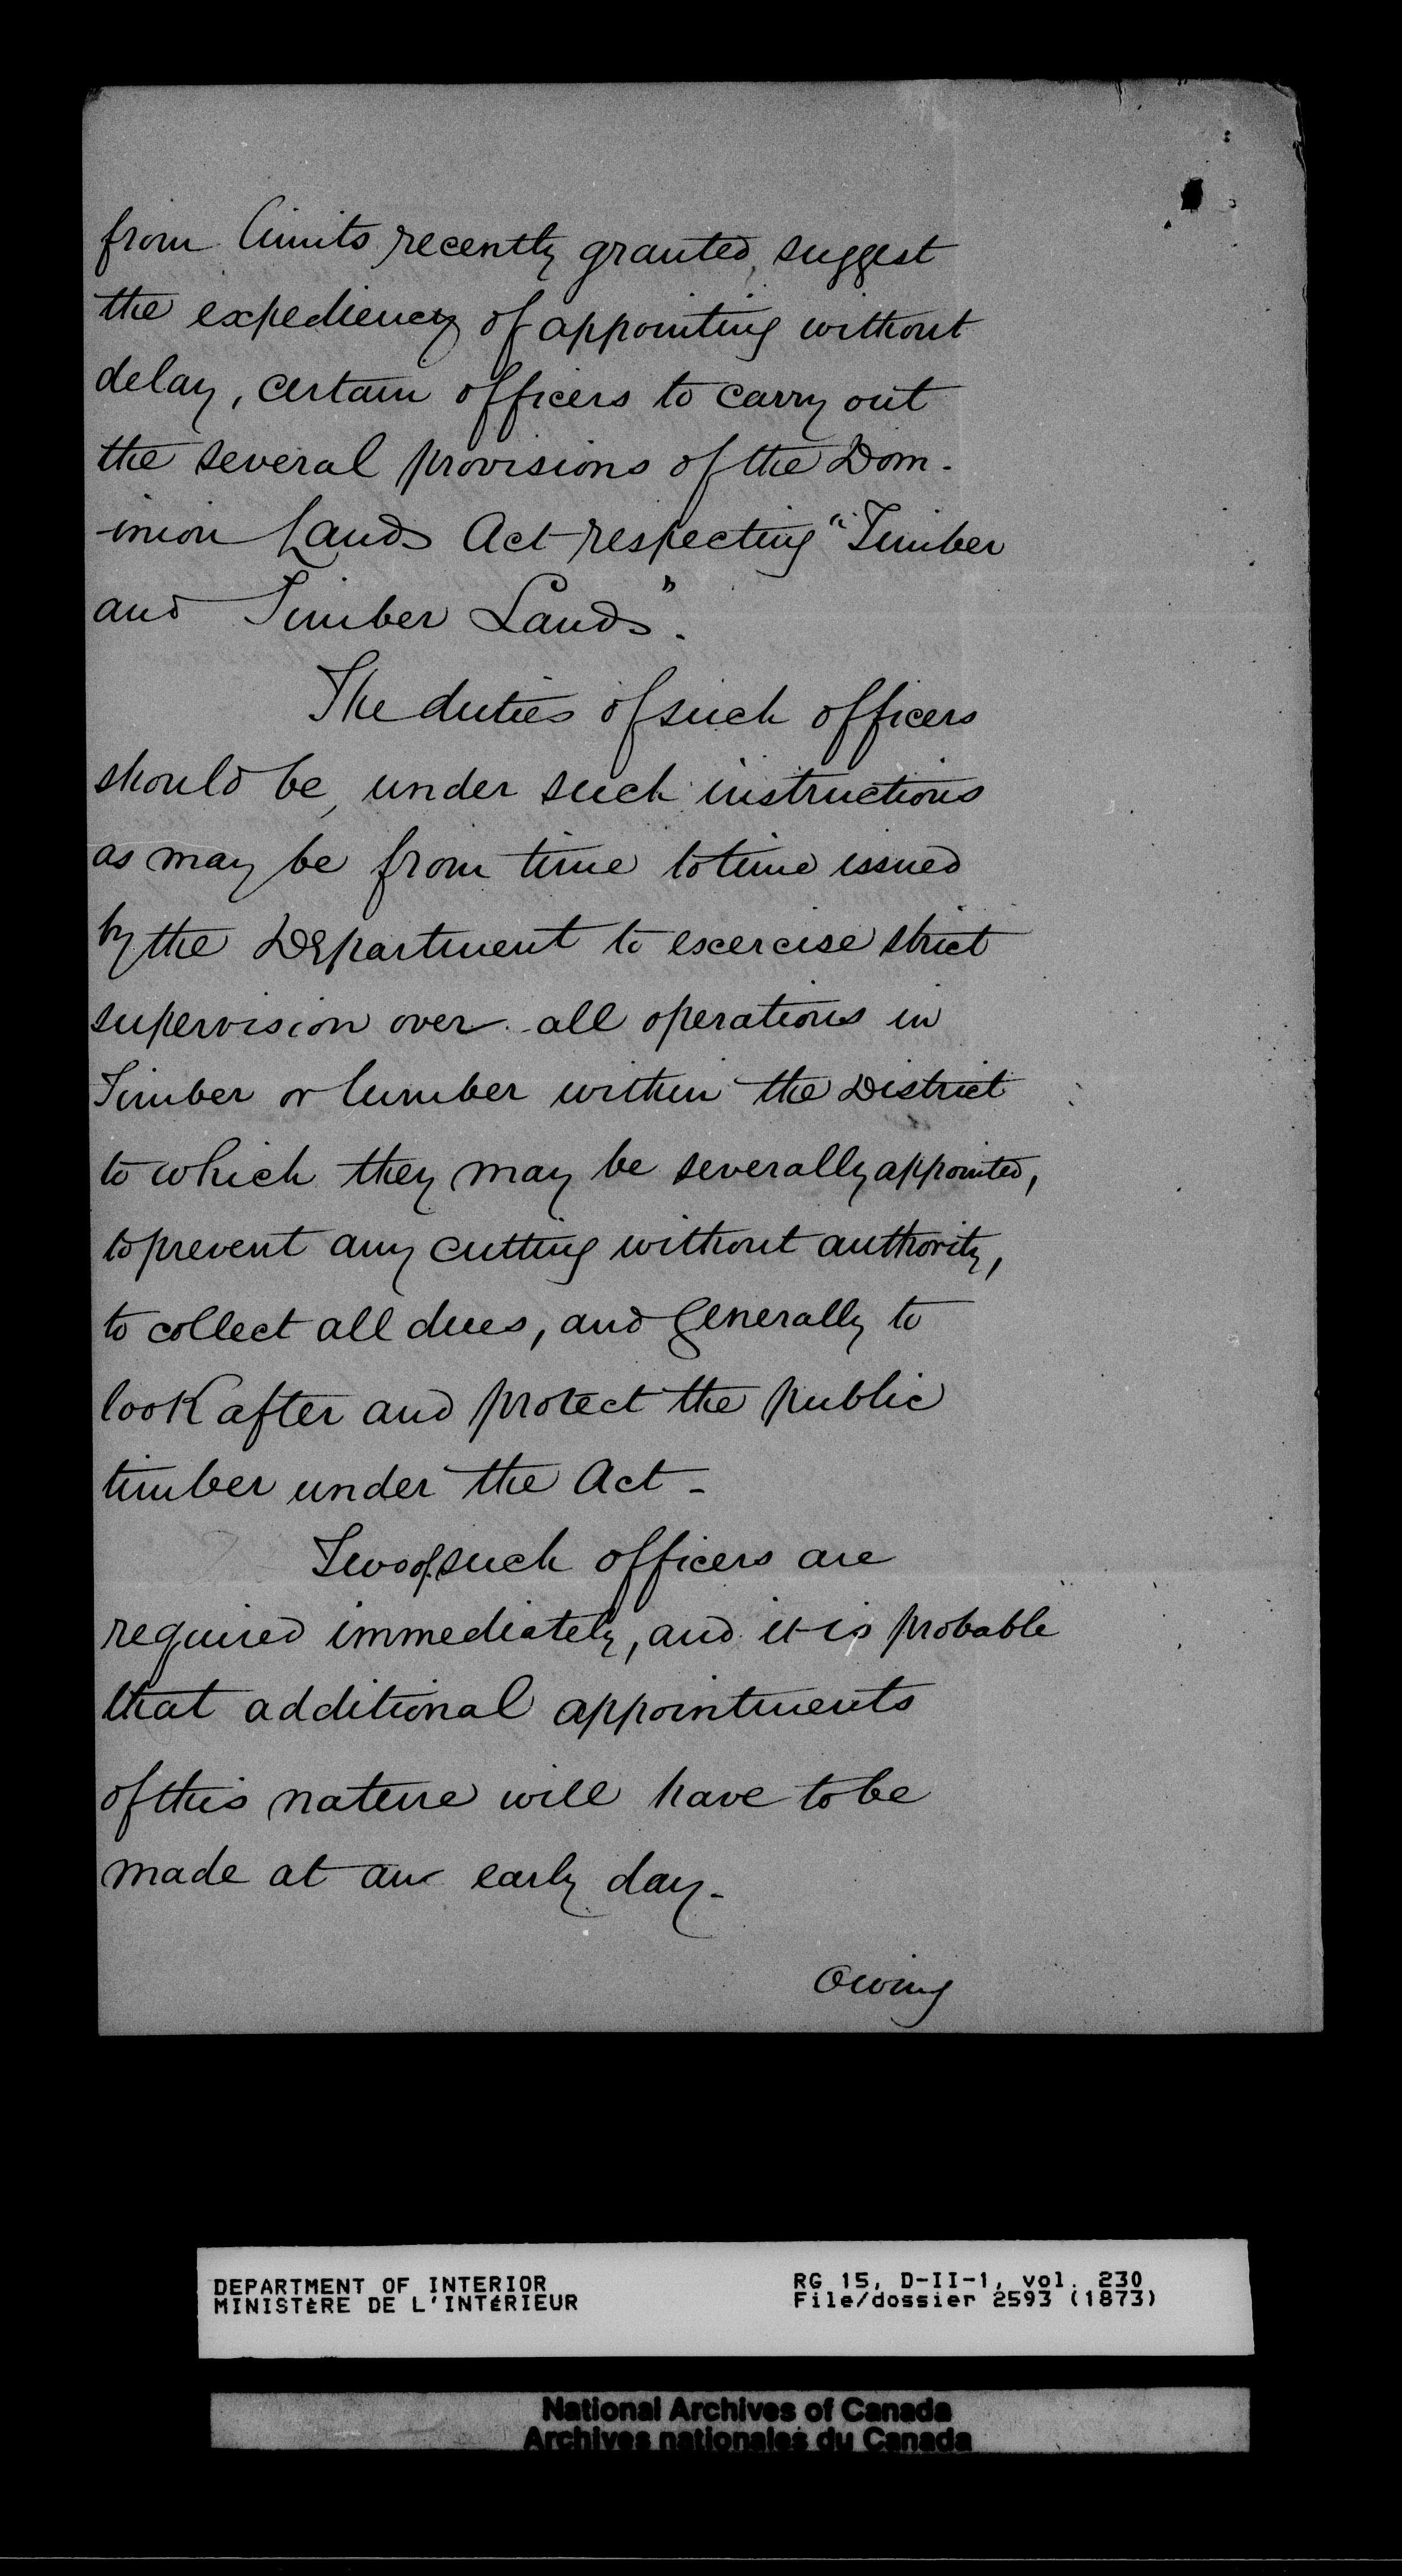 from limits recently granted, suggest
the expediency of appointing without
delay, certain officers to carry out
the several provisions of the Dom-
-inion Lands Act respecting "Timber
and Timber Lands".
The duties of such officers
should be, under such instructions
as may be from time to time issued
by the Department to excercise strict
supervision over all operations in
Timber or lumber within the District
to which they may be severally appointed,
to prevent any cutting without authority,
to collect all dues, and generally to
look after and protect the public
timber under the Act -
Two of such officers are
required immediately, and it is probable
that additional appointments
of this nature will have to be
made at an early day -
Owing
DEPARTMENT OF INTERIOR
MINISTÈRE DE L'INTÉRIEUR
RG 15, D-II-1, vol. 230
File/dossier 2593 (1873)
National Archives of Canada
Archives nationales du Canada